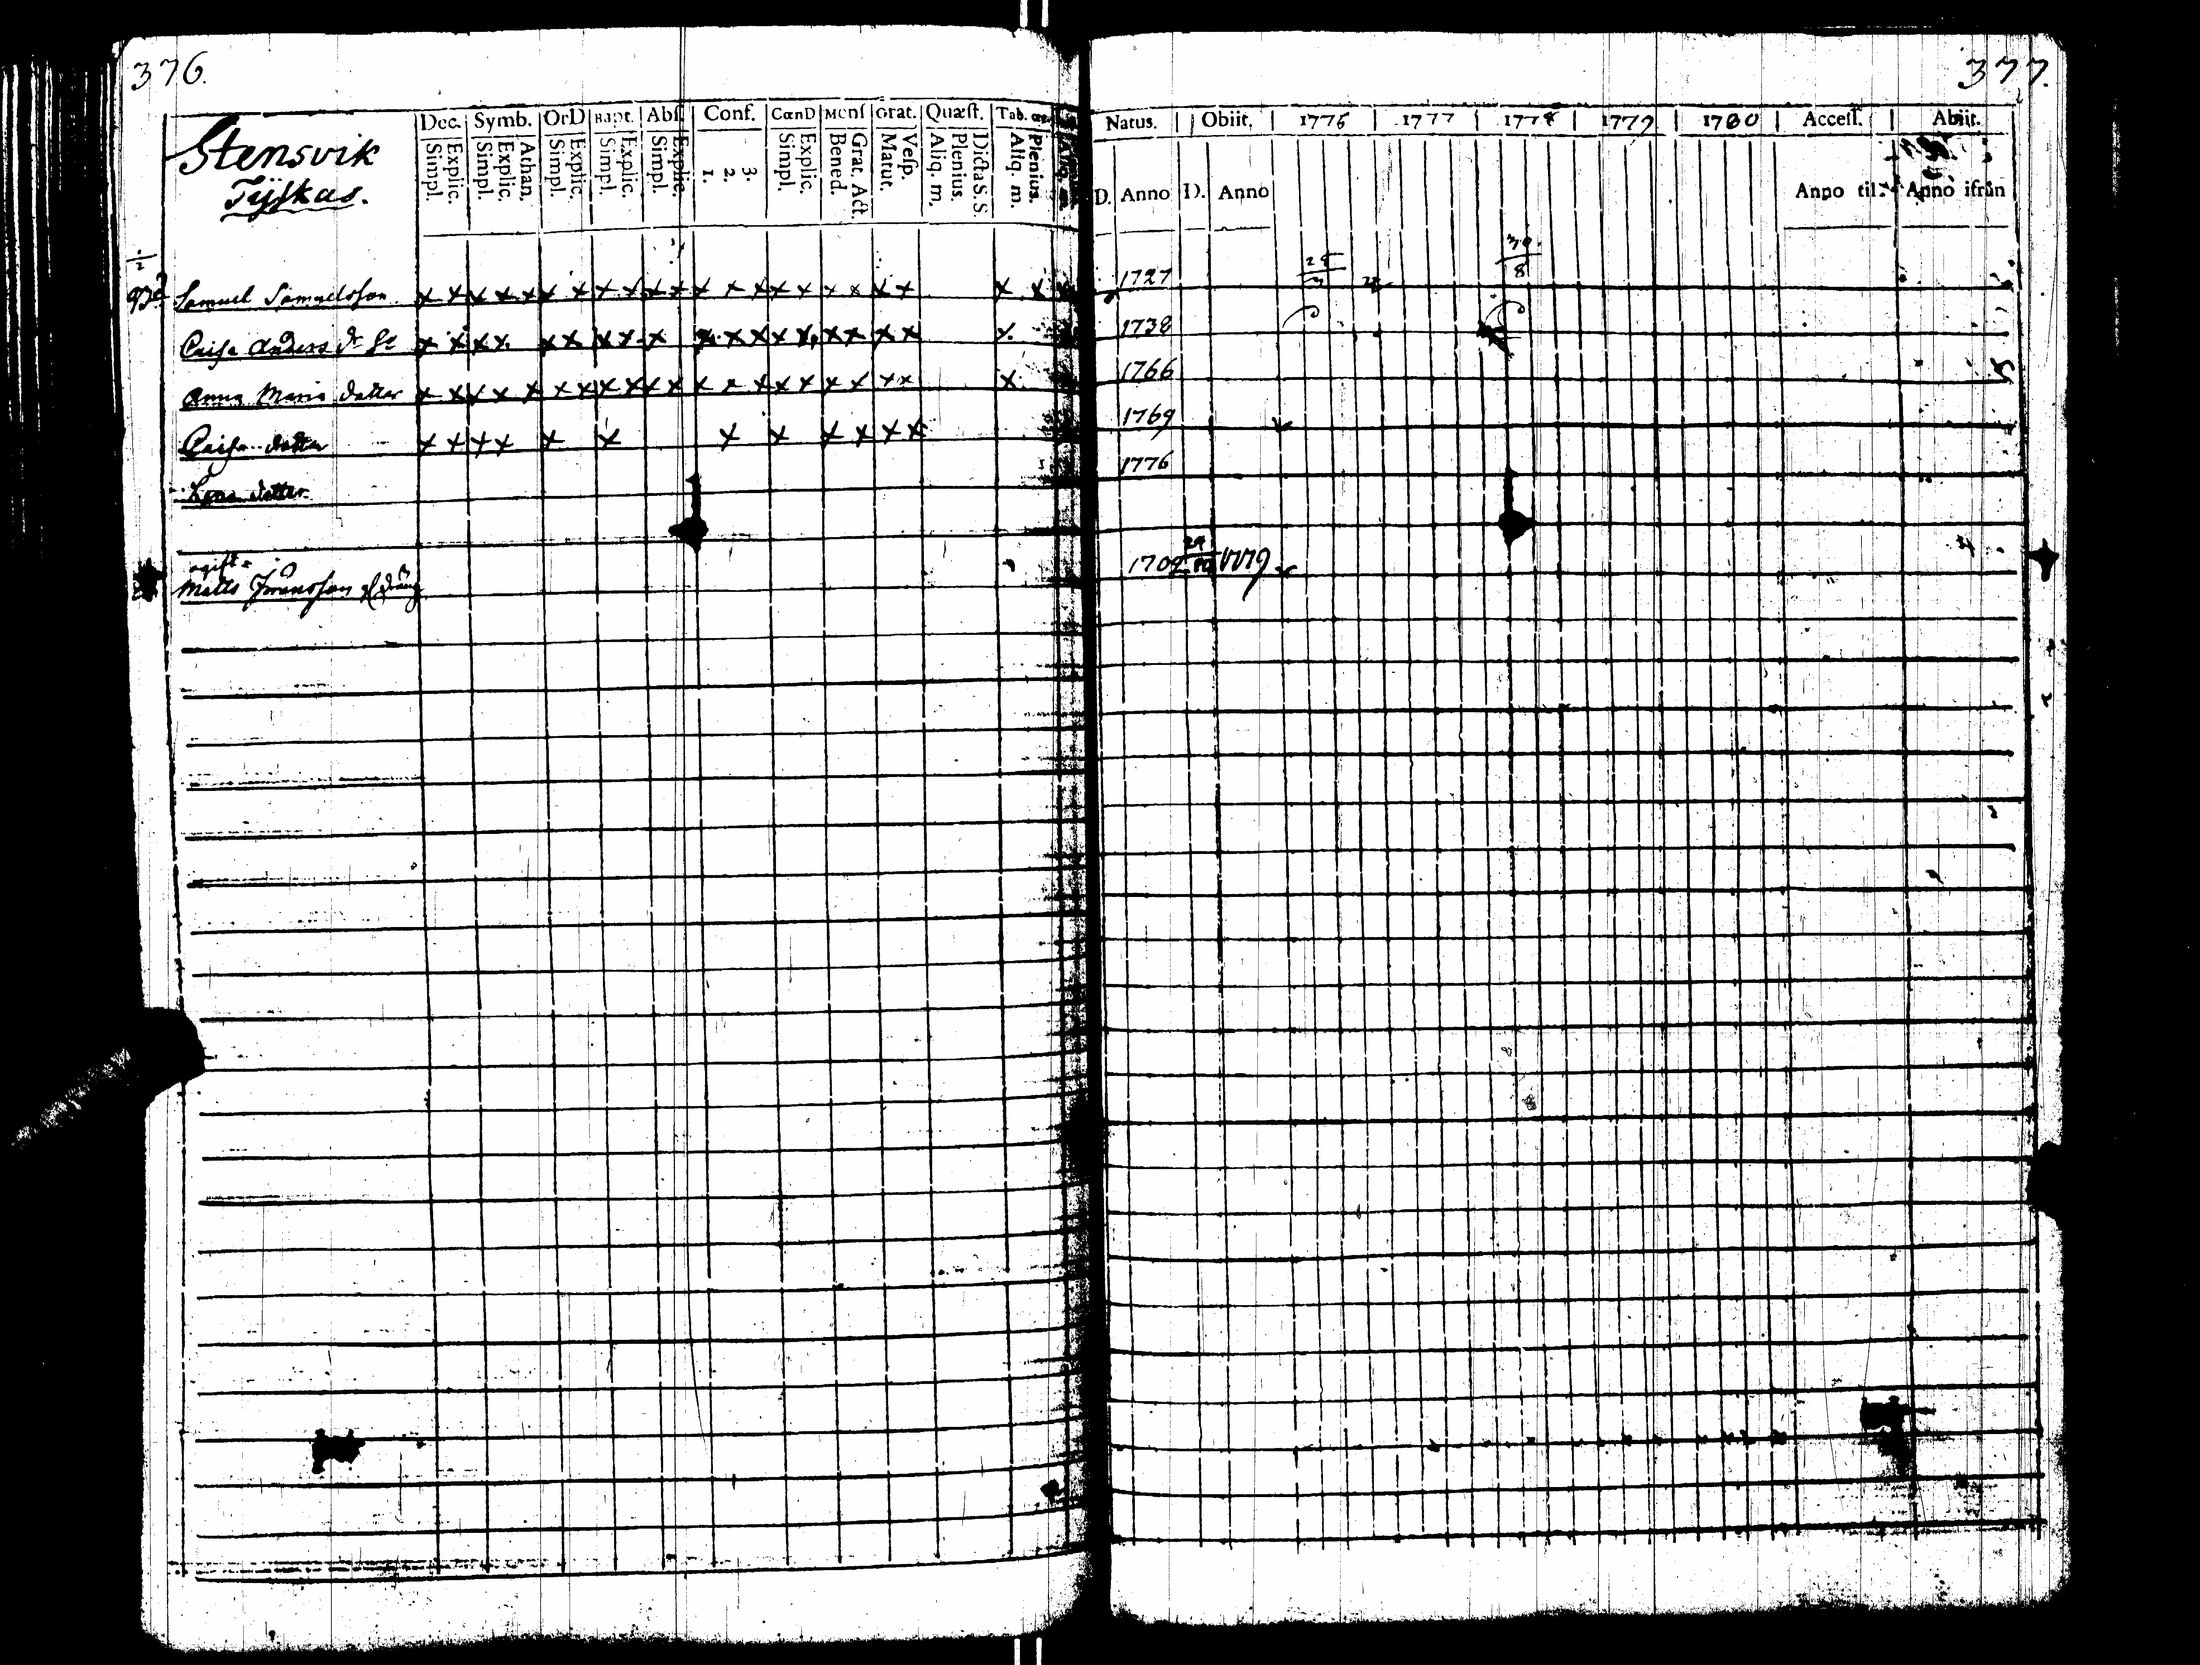 376.
Stensvik
Tyskas.
Dec. Symb. OrD Bapt. Abſ. Conf. CœnD Menſ Grat. Quæſt. Tab. œc.
Explic. Simpl. Athan. Explic. Simpl. Explic. Simpl. Explic. Simpl. Explic. Simpl. 3. 2. 1. Explic. Simpl. Grat. Act. Bened. Veſp. Matut. Dicta S. S. Plenius. Aliq. m. Plenius. Aliq. m.
1/2
Samuel Samuelsson x x x x x x x x x x x x x x x x x x x x x x
Caisa Anders dr x x x x x x x x x x x x x x x x x x x
Anna Maria dotter x x x x x x x x x x x x x x x x x x x x x
Caisa dotter x x x x x x x x x x x x
dotter
ogift
Matts
377.
Natus. Obiit. 1776 1777 1778 1779 1780 Acceſſ. Abiit.
D. Anno D. Anno Anno til Anno ifrån
1727
30/8
1738
1766
1769
1776